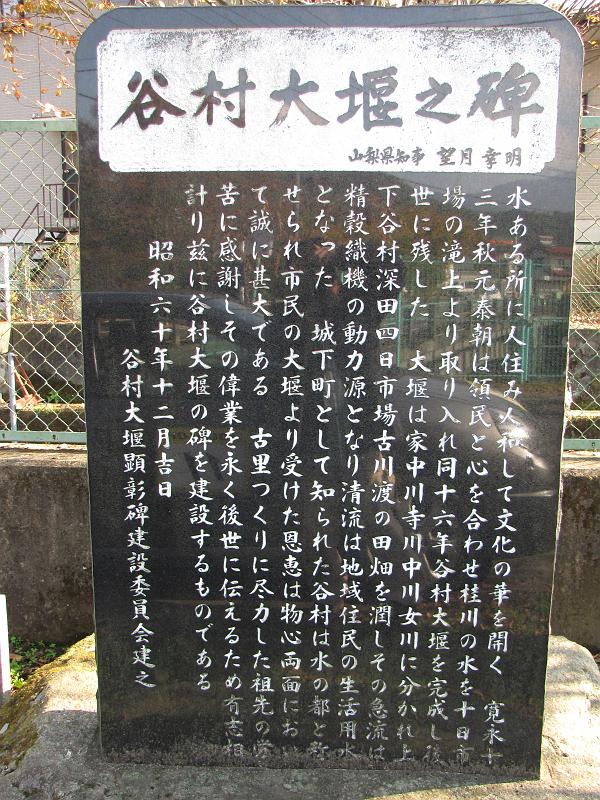 谷村大堰之碑
山梨県知事 望月幸明
水ある所に人住み人和して文化の華を開く 寛永十
三年秋元泰朝は領民と心を合わせ桂川の水を十日市
場の滝上より取り入れ同十六年谷村大堰を完成し後
世に残した 大堰は家中川寺川中川女川に分かれ上
下谷村深田四日市場古川渡の田畑を潤しその急流は
精穀織機の動力源となり清流は地域住民の生活用水
となった 城下町として知られた谷村は水の都と称
せられ市民の大堰より受けた恩恵は物心両面におい
て誠に甚大である 古里つくりに尽力した祖先の労
苦に感謝しその偉業を永く後世に伝えるため有志相
計り茲に谷村大堰の碑を建設するものである
昭和六十年十二月吉日
谷村大堰顕彰碑建設委員会建之